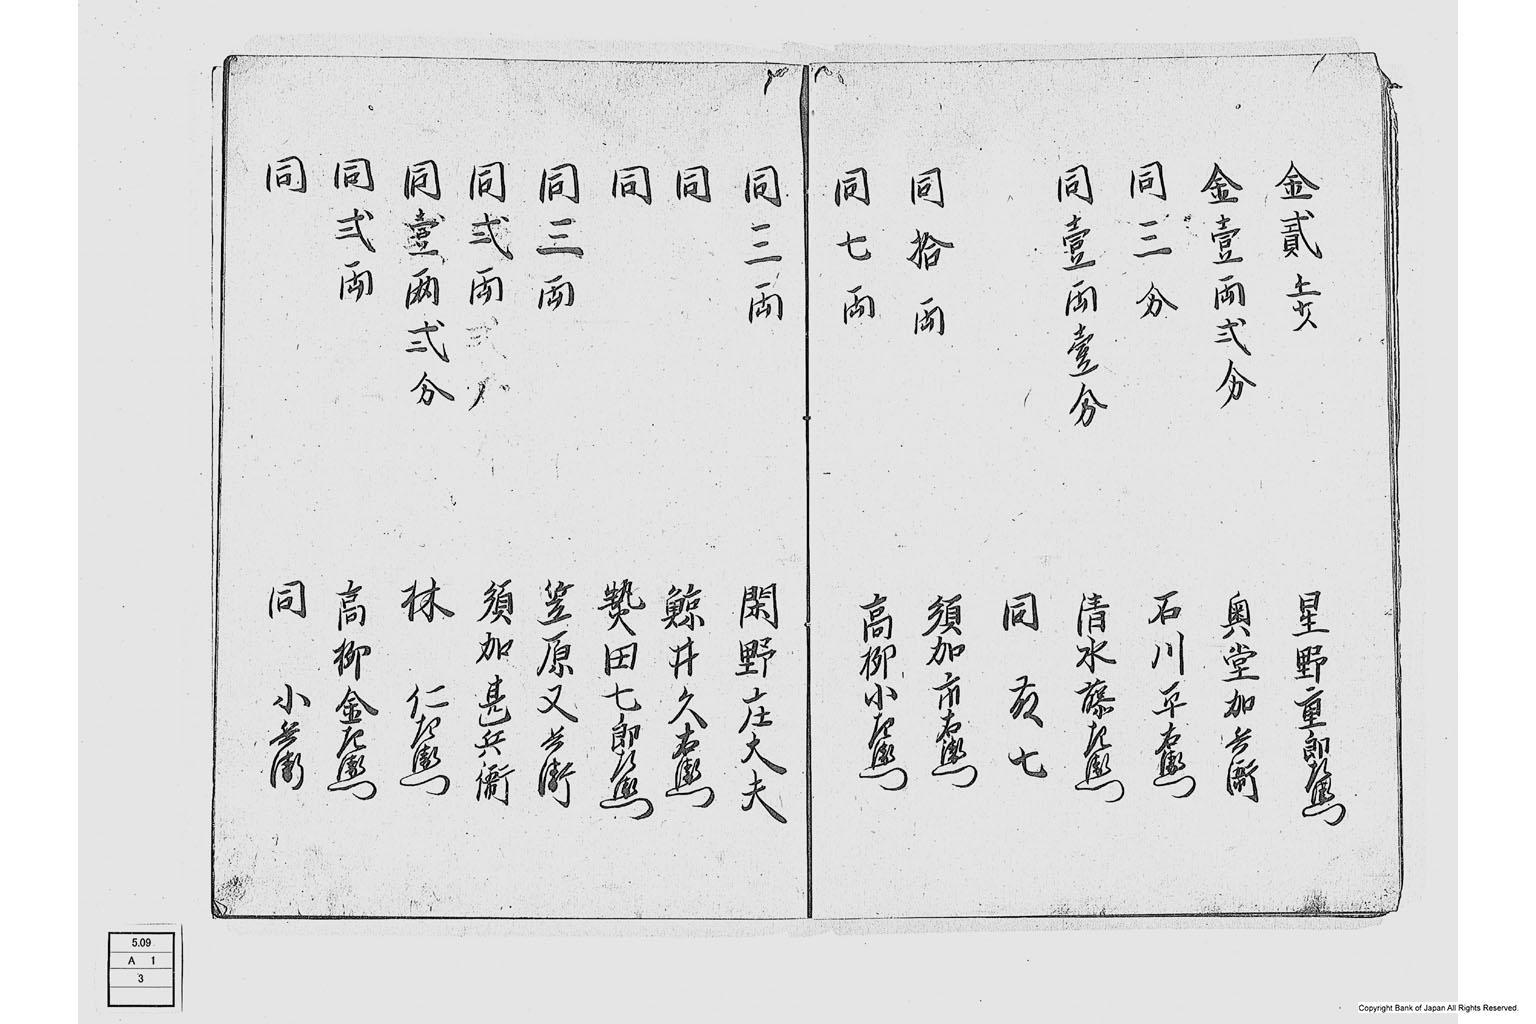 金貳歩 星野重郎左衛門
金壹両弐分 奥堂加兵衛
同三分 石川平右衛門
同壹両壹分 清水藤左衛門
同 友七
同拾両 須加市右衛門
同七両 高柳小左衛門
同三両 関野庄大夫
同 鯨井久右衛門
同 贄田七郎左衛門
同三両 笠原又兵衛
同弐両弐分 須加甚兵衛
同壹両弐分 林 仁左衛門
同弐両 高柳金左衛門
同 同 小兵衛
5.09
A 1
3
Copyright Bank of Japan All Rights Reserved.